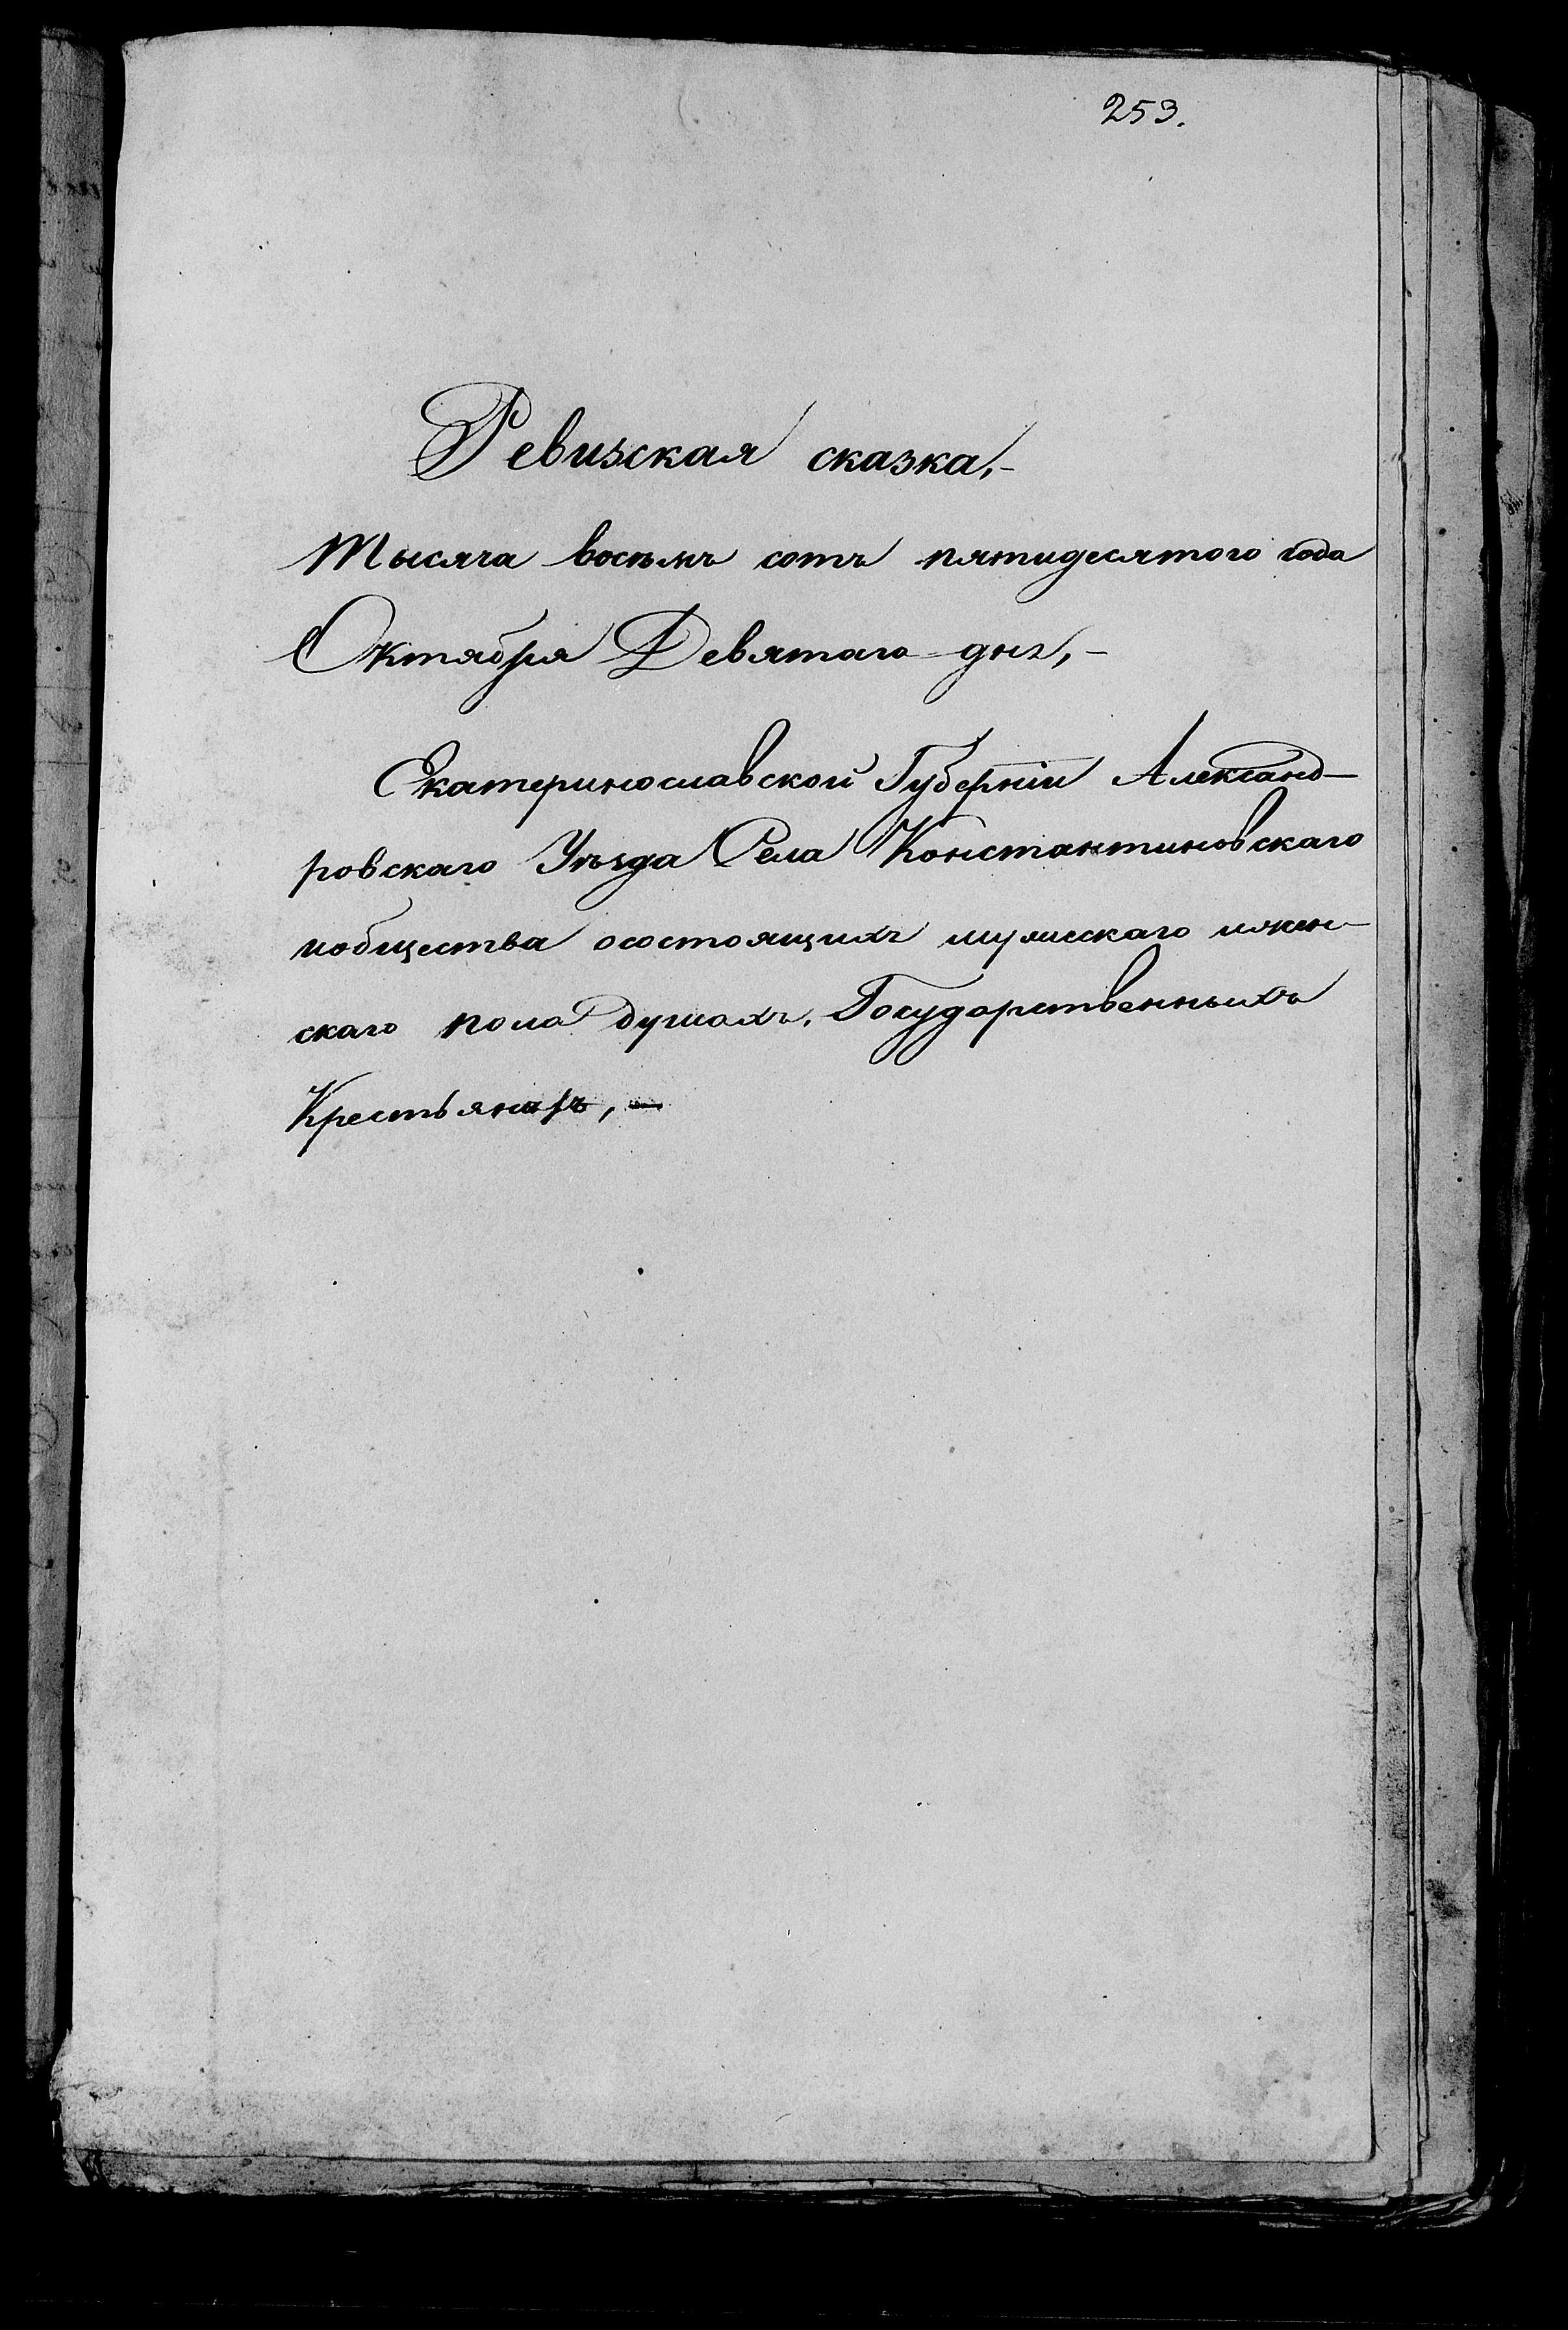 253.
Ревизская сказка,-
Тысяча восемь сотъ пятидесятого года
Октября Девятаго дня,-
Екатеринославской Губерніи Александ-
ровскаго Уѣзда Села Константиновскаго
иобщества осостоящихъ мужескаго ижен-
скаго пола душахъ, Государственныхъ
Крестьянахъ, -